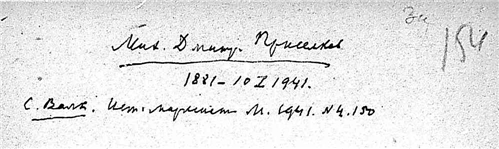 За 154
Мих. Дмитр. Приселков
1881 – 10 I 1941.
С. Валк. Ист. марксист М. 1941. № 4. 150